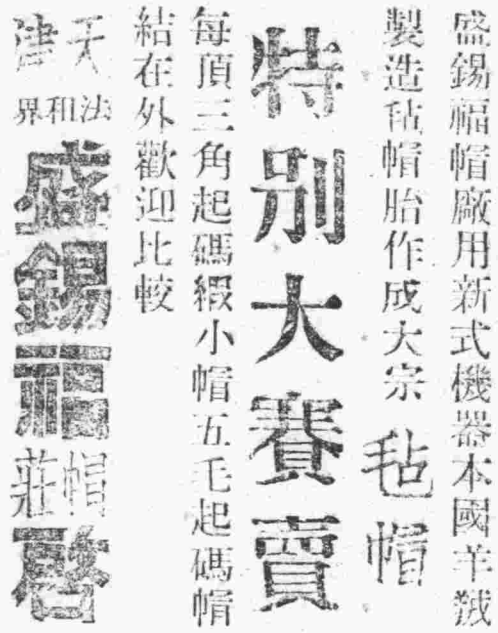 盛錫福帽廠用新式機器本國羊絨
製造毡帽胎作成大宗毡帽
特別大賽賣
每頂三角起碼緞小帽五毛起碼帽
結在外歡迎比較
天津
法和界
盛錫福
帽莊
啓